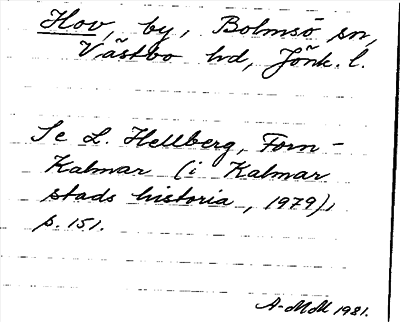 Hov, by, Bolmsö sn,
Västbo hd, Jönk. l.
Se L. Hellberg, Forn-
Kalmar (i Kalmar
stads historia, 1979),
p. 151.
A-MM 1981.